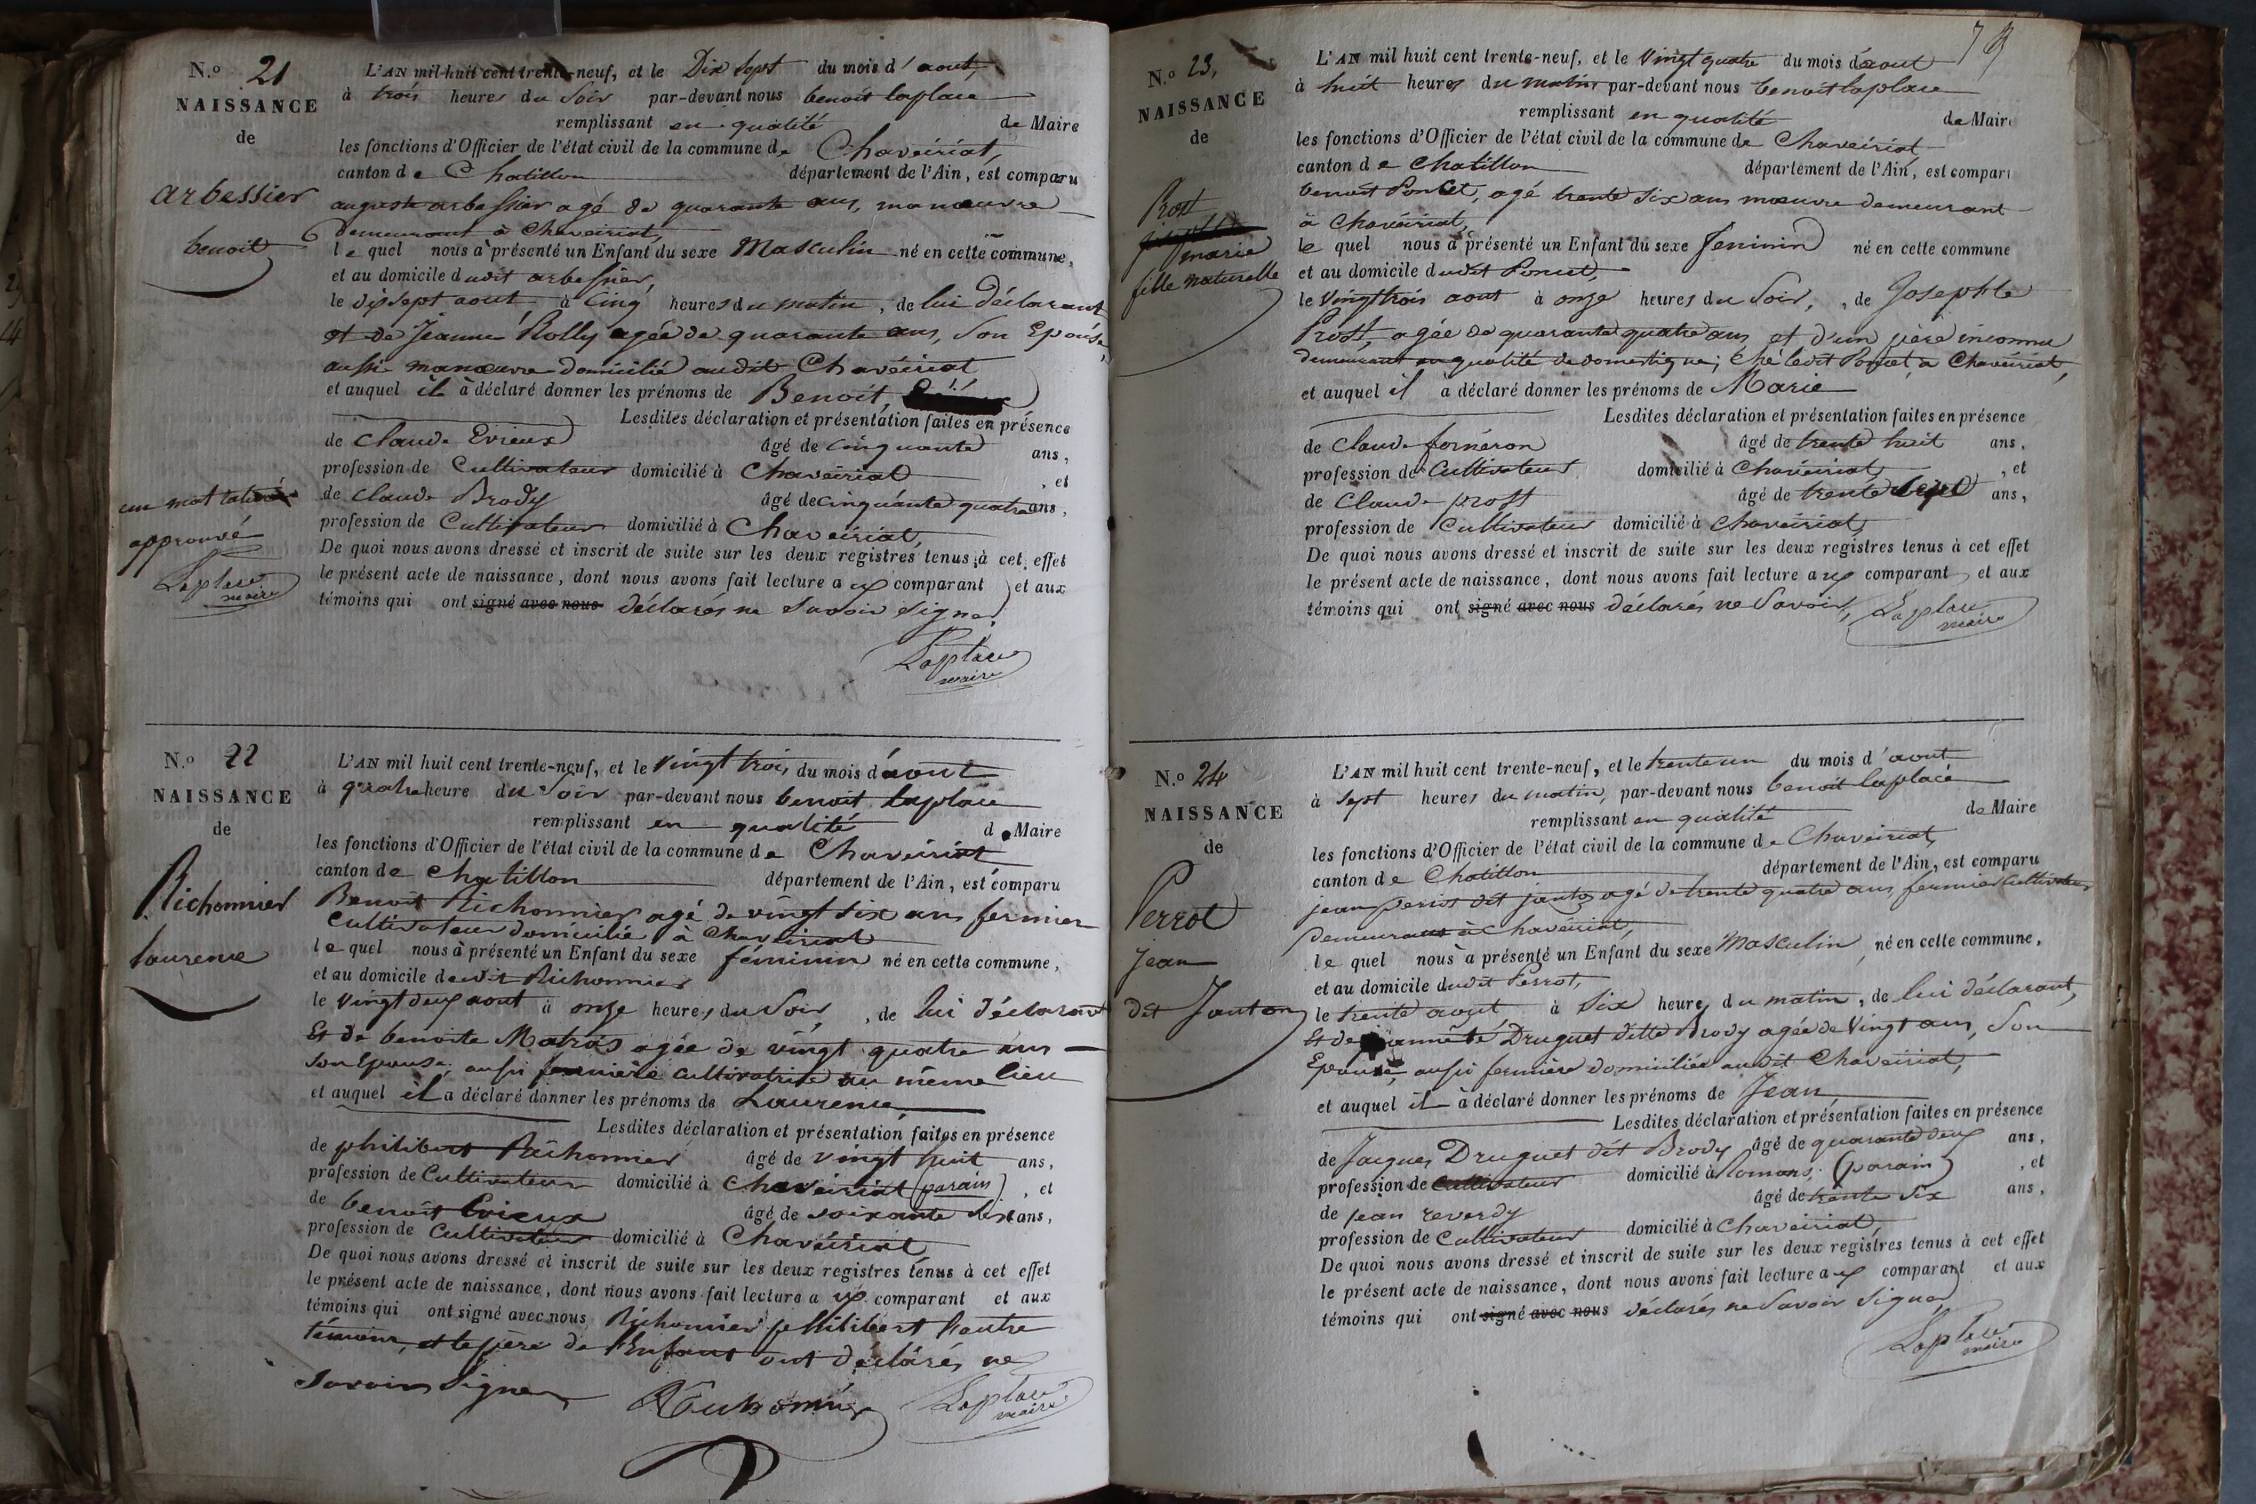 N.o 21
NAISSANCE
de
arbessier
benoit
un mot
approuvé
Laplace
maire
L'AN mil huit cent trente-neuf, et le Dix Sept du mois d'aout,
à trois heures du Soir par-devant nous benoit laplace
remplissant en qualité de Maire
les fonctions d'Officier de l'état civil de la commune de Chaveiriat,
canton de Chatillon département de l'Ain, est comparu
auguste arbessier agé de quarante ans, manœuvre
demeurant à Chaveiriat,
le quel nous à présenté un Enfant du sexe Masculin né en cette commune,
et au domicile dudit arbessier,
le dixsept aout à Cinq heures du matin, de lui déclarant
et de Jeanne Rolly agée de quarante ans, Son Epouse,
aussi manœuvre domicilié audit Chavéiriat
et auquel il à déclaré donner les prénoms de Benoit,
Lesdites déclaration et présentation faites en présence
de Claude Evieux âgé de cinquante ans,
profession de Cultivateur domicilié à Chaveiriat, et
de Claude Brody âgé de cinquante quatre ans,
profession de Cultivateur domicilié à Chaveiriat,
De quoi nous avons dressé et inscrit de suite sur les deux registres tenus à cet effet
le présent acte de naissance, dont nous avons fait lecture aux comparant et aux
témoins qui ont signé avec nous déclarés ne Savoir signer.
Laplace
maire
N.o 22
NAISSANCE
de
Richonnier
laurence
L'AN mil huit cent trente-neuf, et le Vingt trois du mois d'aout
à quatre heure du Soir par-devant nous benoit laplace
remplissant en qualité de Maire
les fonctions d'Officier de l'état civil de la commune de Chaveiriat
canton de Chatillon département de l'Ain, est comparu
Benoit Richonnier agé de vingt six ans fermier
Cultivateur domicilié à Chaveiriat
le quel nous à présenté un Enfant du sexe féminin né en cette commune,
et au domicile dudit Richonnier
le Vingt deux aout à onze heures du Soir, de lui déclarant
Et de benoite Matras agée de vingt quatre ans
Son Epouse, aussi fermière cultivatrice au même lieu
et auquel il a déclaré donner les prénoms de Laurence,
Lesdites déclaration et présentation faites en présence
de philibert Richonnier âgé de vingt huit ans,
profession de Cultivateur domicilié à Chaveiriat (parain), et
de benoit Evieux âgé de soixante six ans,
profession de Cultivateur domicilié à Chavéiriat
De quoi nous avons dressé et inscrit de suite sur les deux registres tenus à cet effet
le présent acte de naissance, dont nous avons fait lecture aux comparant et aux
témoins qui ont signé avec nous Richonnier philibert l'autre
témoin, et le père de l'Enfant ont déclarés ne
Savoir Signer
Richonnier
Laplace
maire
79
N.o 23,
NAISSANCE
de
Prost
marie
fille naturelle
L'AN mil huit cent trente-neuf, et le Vingt quatre du mois d'aout
à huit heures du matin par-devant nous benoit laplace
remplissant en qualité de Maire
les fonctions d'Officier de l'état civil de la commune de Chaveiriat
canton de Chatillon département de l'Ain, est comparu
benoit Poncet, agé trente Six ans mœuvre demeurant
à Chavéiriat,
le quel nous à présenté un Enfant du sexe feminin né en cette commune
et au domicile dudit Poncet,
le Vingttrois aout à onze heures du Soir, de Josephte
Prost, agée de quarante quatre ans et d'un père inconnu
demeurant en qualité de domestique, Ché ledit Poncet, à Chavéiriat,
et auquel il a déclaré donner les prénoms de Marie
Lesdites déclaration et présentation faites en présence
de Claude forneron âgé de trente huit ans,
profession de Cultivateur domicilié à Chavéiriat, et
de Claude prost âgé de trente sept ans,
profession de Cultivateur domicilié à Chaveiriat,
De quoi nous avons dressé et inscrit de suite sur les deux registres tenus à cet effet
le présent acte de naissance, dont nous avons fait lecture aux comparant et aux
témoins qui ont signé avec nous déclarés ne Savoir,
Laplace
maire
N.o 24
NAISSANCE
de
Perrot
Jean
dit Janton
L'AN mil huit cent trente-neuf, et le trente un du mois d'aout
à Sept heures du matin, par-devant nous benoit laplace
remplissant en qualité de Maire
les fonctions d'Officier de l'état civil de la commune de Chaveiriat,
canton de Chatillon département de l'Ain, est comparu
jean perrot dit janton agé de trente quatre ans, fermier Cultivateur
Demeurant à Chavéiriat,
le quel nous à présenté un Enfant du sexe Masculin, né en cette commune,
et au domicile dudit Perrot,
le trente aout, à Six heures du matin, de lui déclarant,
Et de Druguet ditte Brody agée de Vingt ans, Son
Epouse, aussi fermière domiciliée audit Chaveiriat,
et auquel il à déclaré donner les prénoms de Jean,
Lesdites déclaration et présentation faites en présence
de Jacques Druguet dit Brody âgé de quarante deux ans,
profession de Cultivateur domicilié à Romans, (parain), et
de jean reverdy âgé de trente Six ans,
profession de Cultivateur domicilié à Chaveiriat,
De quoi nous avons dressé et inscrit de suite sur les deux registres tenus à cet effet
le présent acte de naissance, dont nous avons fait lecture aux comparant et aux
témoins qui ont signé avec nous déclarés ne Savoir Signer,
Laplace
maire